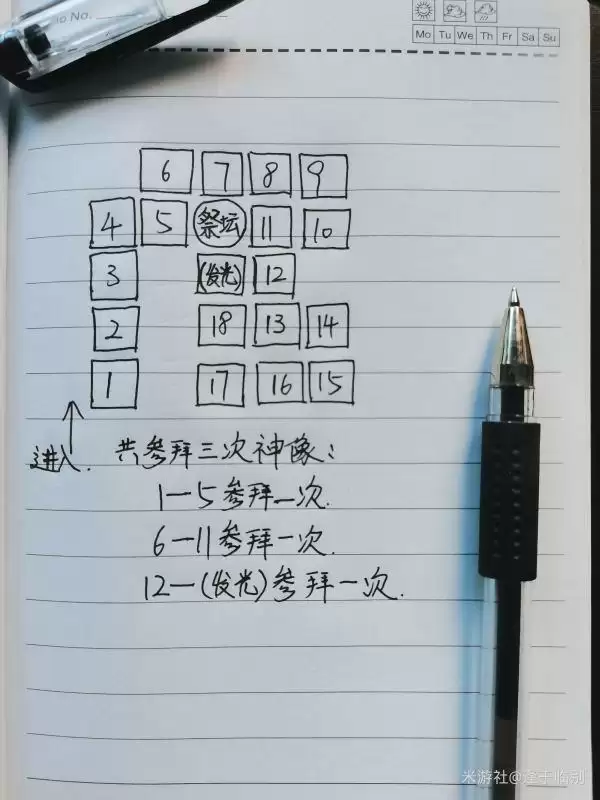 No.
Mo Tu We Th Fr Sa Su
6 7 8 9
4 5 祭坛 11 10
3 (发光) 12
2 18 13 14
1 17 16 15
进入. 共参拜三次神像:
1—5参拜一次.
6—11参拜一次.
12—(发光)参拜一次.
米游社@逢于临别